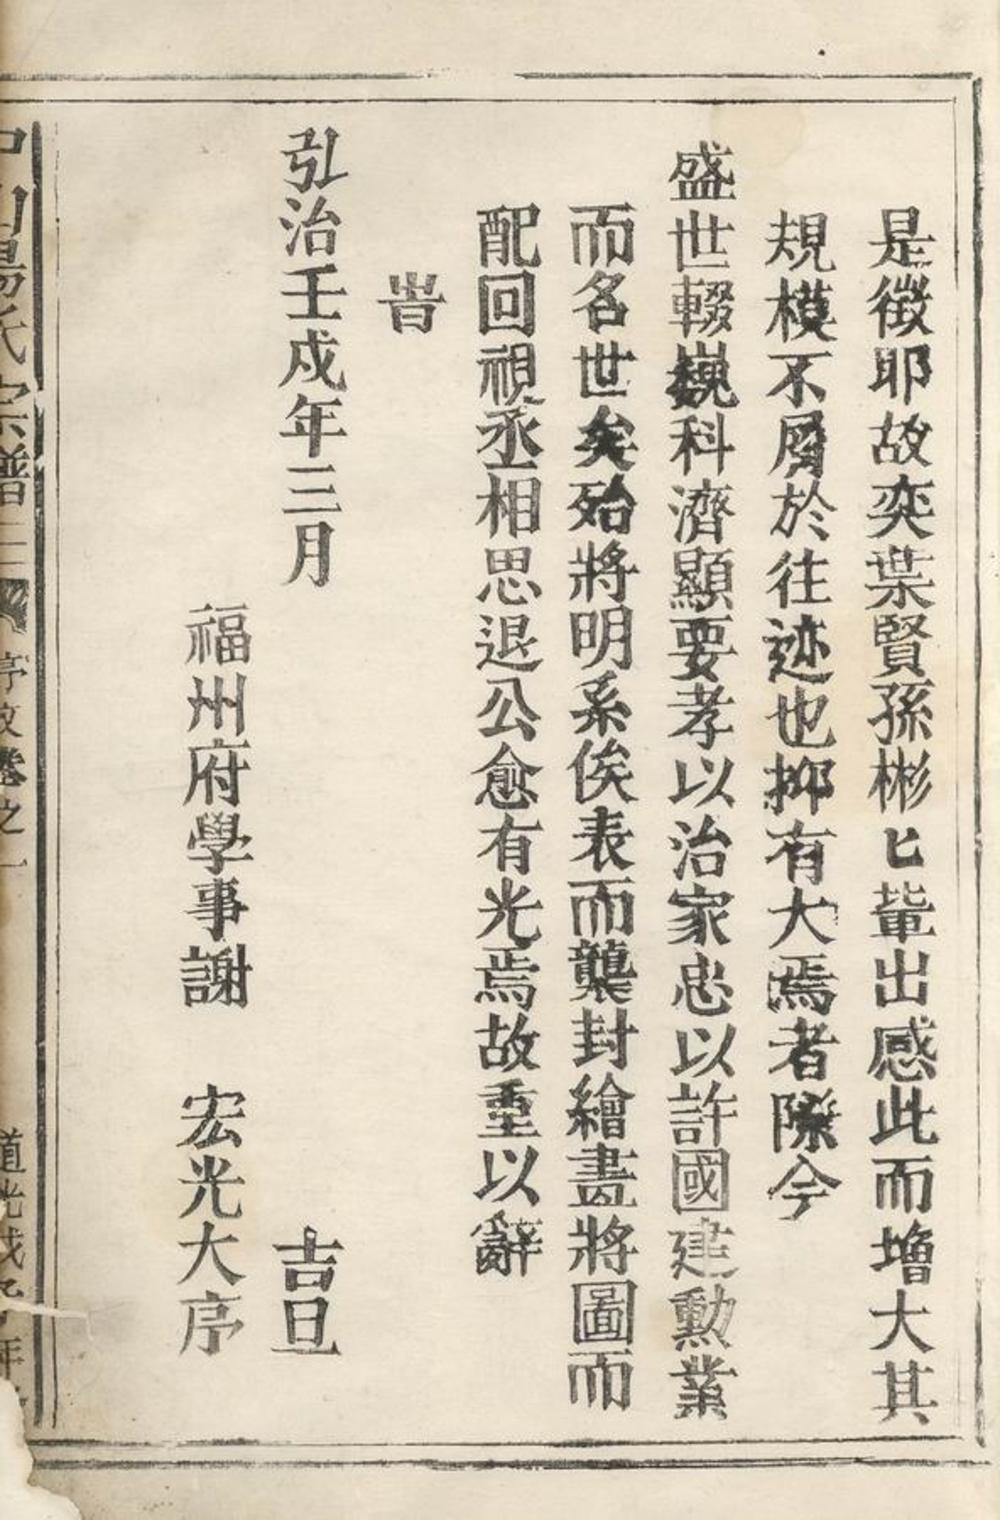 是徵耶故奕葉賢孫彬匕軰出感此而增大其
規模不屑於往迹也抑有大焉者際今
盛世輟巍科濟顯要孝以治家忠以許國建勳業
而名世矣殆將明系俟表而襲封繪畫將圖而
配回視丞相思退公愈有光焉故重以辭
旹
弘治壬戍年三月 吉旦
福州府學事謝 宏光大序
湯氏宗譜 序文卷之一 道光戊 年